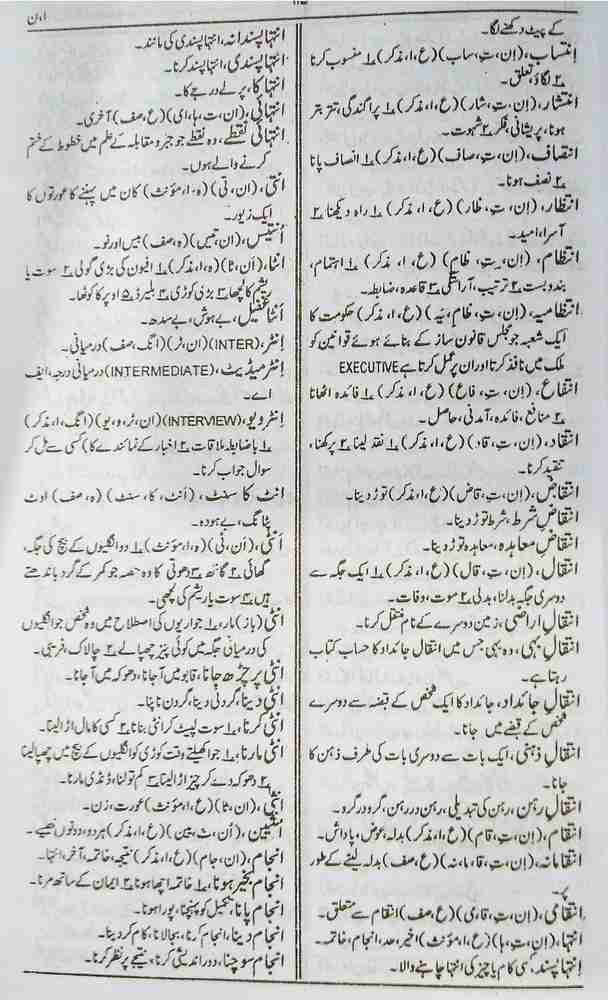 ا۔ن
کے پیٹ دکھنے لگا۔
اِنتساب، (اِن،تِ،ساب) (ع،ا،مذکر) ۱؎ منسوب کرنا
۲؎ لگاؤ، تعلق۔
انتشار، (اِن،تِ،شار) (ع،ا،مذکر) ۱؎ پراگندگی، تتر بتر
ہونا، پریشانی، فکر ۲؎ شہوت۔
انتصاف، (اِن،تِ،صاف) (ع،ا،مذکر) ۱؎ انصاف پانا
۲؎ نصف ہونا۔
انتظار، (اِن،تِ،ظار) (ع،ا،مذکر) ۱؎ راہ دیکھنا ۲؎
آسرا، امید۔
انتظام، (اِن،تِ،ظام) (ع،ا،مذکر) ۱؎ اہتمام،
بندوبست ۲؎ ترتیب، آراستگی ۳؎ قاعدہ، ضابطہ۔
انتظامیہ، (اِن،تِ،ظام،یہ) (ع،ا،مذکر) حکومت کا
ایک شعبہ جو مجلس قانون ساز کے بنائے ہوئے قوانین کو
ملک میں نافذ کرتا اور ان پر عمل کرتا ہے EXECUTIVE
انتفاع، (اِن،تِ،فاع) (ع،ا،مذکر) ۱؎ فائدہ اٹھانا
۲؎ منافع، فائدہ، آمدنی، حاصل۔
انتقاد، (اِن،تِ،قاد) (ع،ا،مذکر) ۱؎ نقد لینا ۲؎ پرکھنا،
تنقید کرنا۔
انتقاض، (اِن،تِ،قاض) (ع،ا،مذکر) توڑ دینا۔
انتقاضِ شرط، شرط توڑ دینا۔
انتقاضِ معاہدہ، معاہدہ توڑ دینا۔
انتقال، (اِن،تِ،قال) (ع،ا،مذکر) ۱؎ ایک جگہ سے
دوسری جگہ بدلنا، بدلی ۲؎ موت، وفات۔
انتقالِ اراضی، زمین دوسرے کے نام منتقل کرنا۔
انتقال بہی، وہ بہی جس میں انتقال جائداد کا حساب کتاب
رہتا ہے۔
انتقالِ جائداد، جائداد کا ایک شخص کے قبضہ سے دوسرے
شخص کے قبضے میں جانا۔
انتقالِ ذہنی، ایک بات سے دوسری بات کی طرف ذہن کا
جانا۔
انتقالِ رہن، رہن کی تبدیلی، رہن در رہن، گرو در گرو۔
انتقام، (اِن،تِ،قام) (ع،ا،مذکر) بدلہ، عوض، پاداش۔
انتقامانہ، (اِن،تِ،قا،ما،نہ) (ع،صف) بدلہ لینے کے طور
پر۔
انتقامی، (اِن،تِ،قا،می) (ع،صف) انتقام سے متعلق۔
انتہا، (اِن،تِ،ہا) (ع،ا،مؤنث) اخیر، حد، انجام، خاتمہ۔
انتہا پسند، کسی کام یا چیز کی انتہا چاہنے والا۔
انتہا پسندانہ، انتہا پسندی کی مانند۔
انتہا پسندی، انتہا پسند کرنا۔
انتہا کا، پرلے درجے کا۔
انتہائی، (اِن،تِ،ہا،ای) (ع،صف) آخری۔
انتہائی نقطے، وہ نقطے جو جبر و مقابلہ کے علم میں خطوط کے ختم
کرنے والے ہوں۔
انتی، (ان،تی) (ہ،ا،مؤنث) کان میں پہننے کا عورتوں کا
ایک زیور۔
اُنتیس، (ان،تیس) (ہ،صف) بیس اور نو۔
انٹا، (اَن،ٹا) (ہ،ا،مذکر) ۱؎ افیون کی بڑی گولی ۲؎ سوت یا
ریشم کا لچھا ۳؎ بڑی کوڑی ۴؎ بلیرڈ ۵؎ اوپر کا کوٹھا۔
انٹا غفیل، بے ہوش، بے سدھ۔
اِنٹر، (INTER) (اِن،ٹر) (انگ،صف) درمیانی۔
انٹرمیڈیٹ، (INTERMEDIATE) درمیانی درجہ، ایف
اے۔
اِنٹرویو، (INTERVIEW) (اِن،ٹر،و،یو) (انگ،ا،مذکر)
۱؎ باضابطہ ملاقات ۲؎ (اخبار کے نمائندے کا) کسی سے مل کر
سوال جواب کرنا۔
انٹ کا سنٹ، (اَنٹ،کا،سنٹ) (ہ،صف) اوٹ
پٹانگ، بے ہودہ۔
اَنٹی، (اَن،ٹی) (ہ،ا،مؤنث) ۱؎ دو انگلیوں کے بیچ کی جگہ،
گھائی ۲؎ گانٹھ ۳؎ دھوتی کا وہ حصہ جو کمر کے گرد باندھتے
ہیں ۴؎ سوت یا ریشم کی لچھی۔
انٹی (باز) مار، ۱؎ جواریوں کی اصطلاح میں وہ شخص جو انگلیوں
کی درمیانی جگہ میں کوئی چیز چھپالے ۲؎ چالاک، فریبی۔
انٹی پر چڑھ جانا، قابو میں آجانا، دھوکہ میں آجانا۔
انٹی دینا، گردنی دینا، گردن ناپنا۔
انٹی کرنا، ۱؎ سوت لپیٹ کر انٹی بنانا ۲؎ کسی کا مال اڑا لینا۔
انٹی مارنا، ۱؎ جوا کھیلتے وقت کوڑی کو انگلیوں کے بیچ میں چھپا لینا
۲؎ دھوکہ دے کر چیز اڑا لینا ۳؎ کم تولنا، ڈنڈی مارنا۔
انثیٰ، (اُن،ثا) (ع،ا،مؤنث) عورت، زن۔
انثیین، (اُن،ث،یین) (ع،ا،مذکر) ہر دو، دونوں خصیے۔
انجام، (ان،جام) (ع،ا،مذکر) نتیجہ، خاتمہ، آخر، انتہا۔
انجام بخیر ہونا، ۱؎ خاتمہ اچھا ہونا ۲؎ ایمان کے ساتھ مرنا۔
انجام پانا، تکمیل کو پہنچنا، پورا ہونا۔
انجام دینا، انجام کرنا، بجا لانا، کام کر دینا۔
انجام سوچنا، دور اندیشی کرنا، نتیجے پر نظر کرنا۔